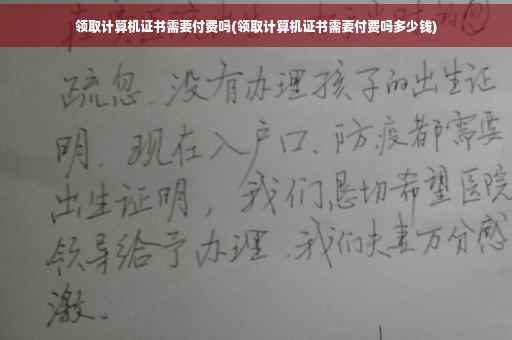 领取计算机证书需要付费吗(领取计算机证书需要付费吗多少钱)
疏忽.没有办理孩子的出生证
明.现在入户口、防疫都需要
出生证明，我们恳切希望医院
领导给予办理.我们夫妻万分感
激。